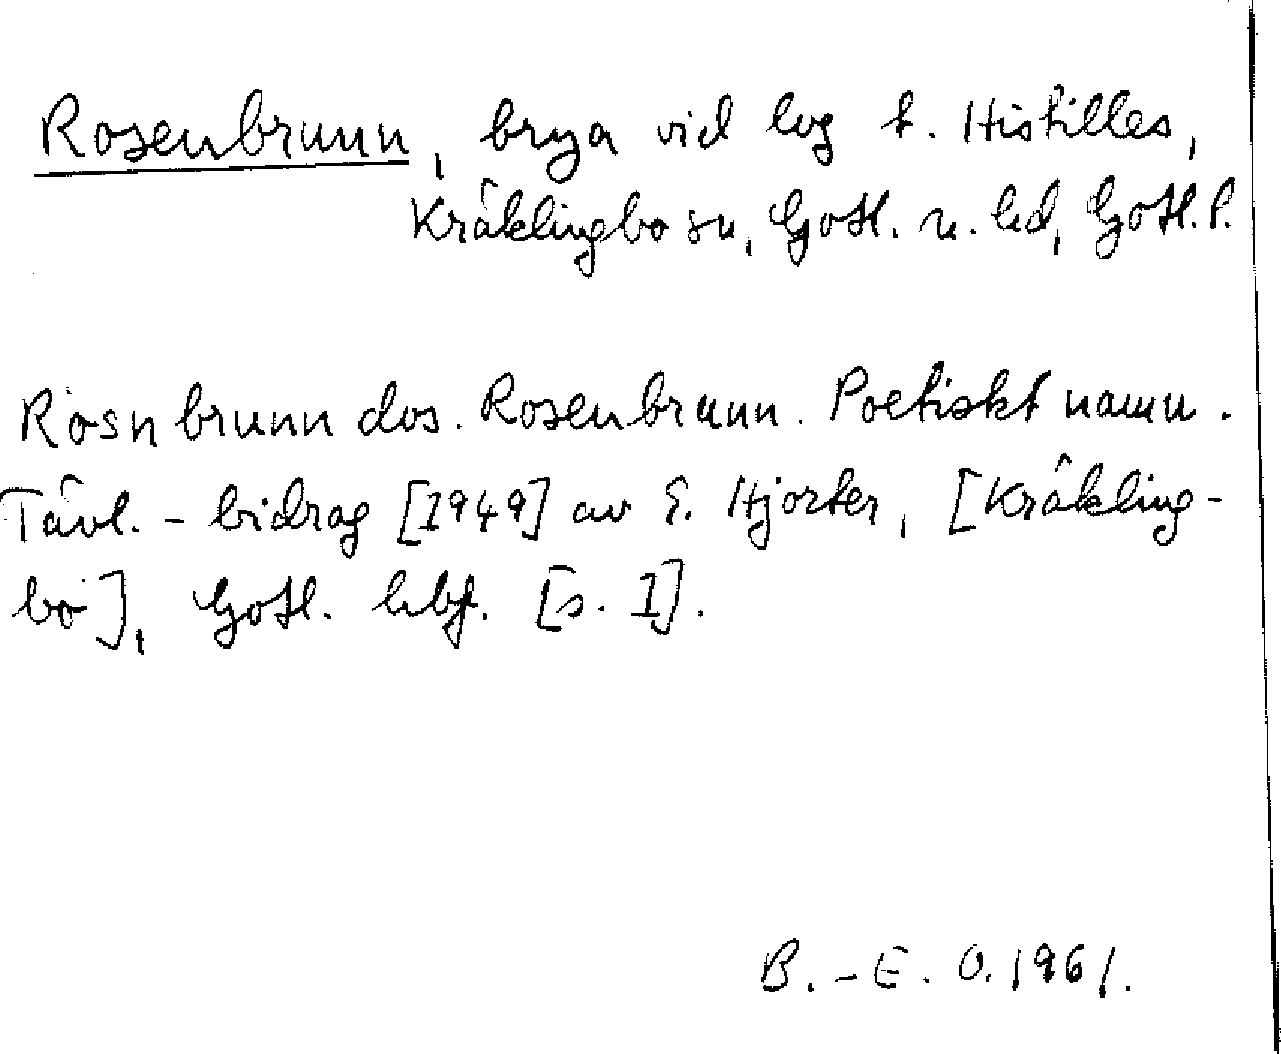 Rosenbrunn, brya vid lvg t. Histilles,
Kräklingbo sn, Gotl. n. hd, Gotl. l.
Rosnbrunn dos. Rosenbrunn. Poetiskt namn.
Tävl. - bidrag [1949] av E. Hjorter, [Kräkling-
bo], Gotl. hbf. [s. 1].
B.-E. O. 1961.